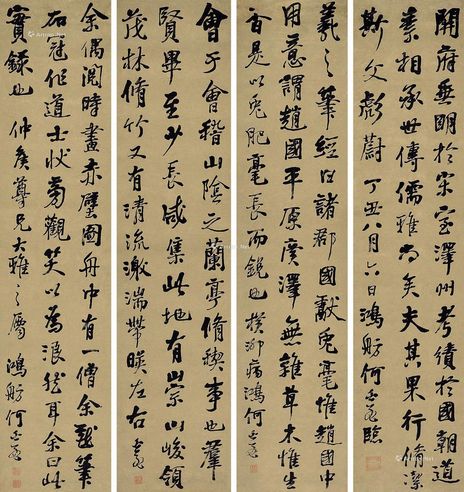 開府垂聞於宋室澤州考績於國朝道
業相承世傳儒雅尚矣夫其果行脩潔
斯文彪蔚 丁丑八月六日鴻舫何臨
羲之筆經曰諸郡國獻兔毫惟趙國中
用意謂趙國平原廣澤無雜草木惟生
百是以兔肥毫長而銳也 病鴻何
會于會稽山陰之蘭亭脩稧事也羣
賢畢至少長咸集此地有崇山峻領
茂林脩竹又有清流激湍帶暎左右
余偶閱時畫赤壁圖舟中有一僧余戲筆
石冠作道士狀旁觀笑以為浪然耳余曰此
實錄也 仲矦尊兄大雅之屬 鴻舫何